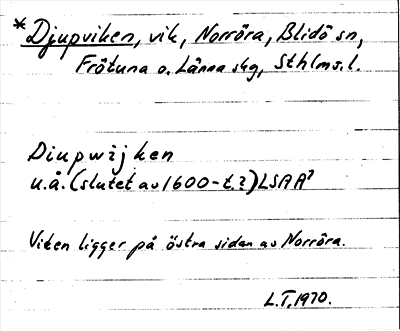 * Djupviken, vik, Norröra, Blidö sn,
Frötuna o. Länna skg, Sthlms l.
Diupwijken
u.å. (slutet av 1600-t.?) LSA A⁷
Viken ligger på östra sidan av Norröra.
L.T. 1970.